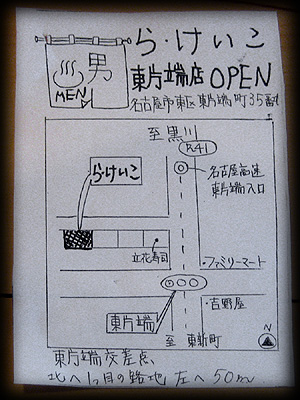 男
MEN
ら・けいこ
東片端店 OPEN
名古屋市東区東片端町35番地
至黒川
R41
らけいこ
名古屋高速
東片端入口
立花寿司
・ファミリーマート
東片端
・吉野屋
至 東新町
N
東片端交差点
北へ1つ目の路地 左へ50m